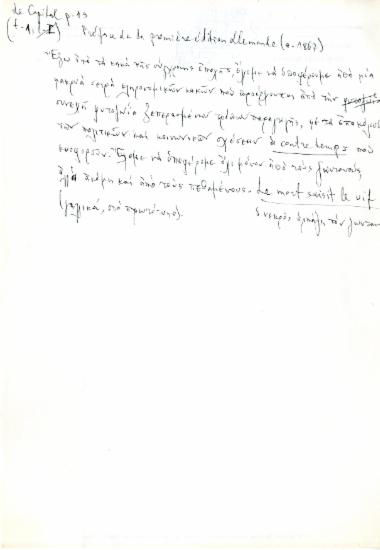 Le Capital p. 19
(t-1, L-I) Préface de la première édition allemande (a-1867)
"Ἔξω ἀπὸ τὰ κακὰ τῆς σύγχρονης ἐποχῆς, ἔχομε νὰ ὑποφέρομε ἀπὸ μιὰ
μακριὰ σειρὰ κληρονομικῶν κακῶν ποὺ προέρχονται ἀπὸ τὴν
συνεχῆ φυτοζωία ξεπερασμένων τρόπων παραγωγῆς, μὲ τὰ ἐπακόλουθα
τῶν πολιτικῶν καὶ κοινωνικῶν σχέσεων à contre temps ποὺ
. Ἔχομε νὰ ὑποφέρομε ὄχι μόνον ἀπὸ τοὺς ζωντανοὺς
ἀλλὰ ἀκόμη καὶ ἀπὸ τοὺς πεθαμένους. Le mort saisit le vif
(γαλλικά, στὸ πρωτότυπο). ὁ νεκρὸς ἁρπάζει τὸν ζωντανό